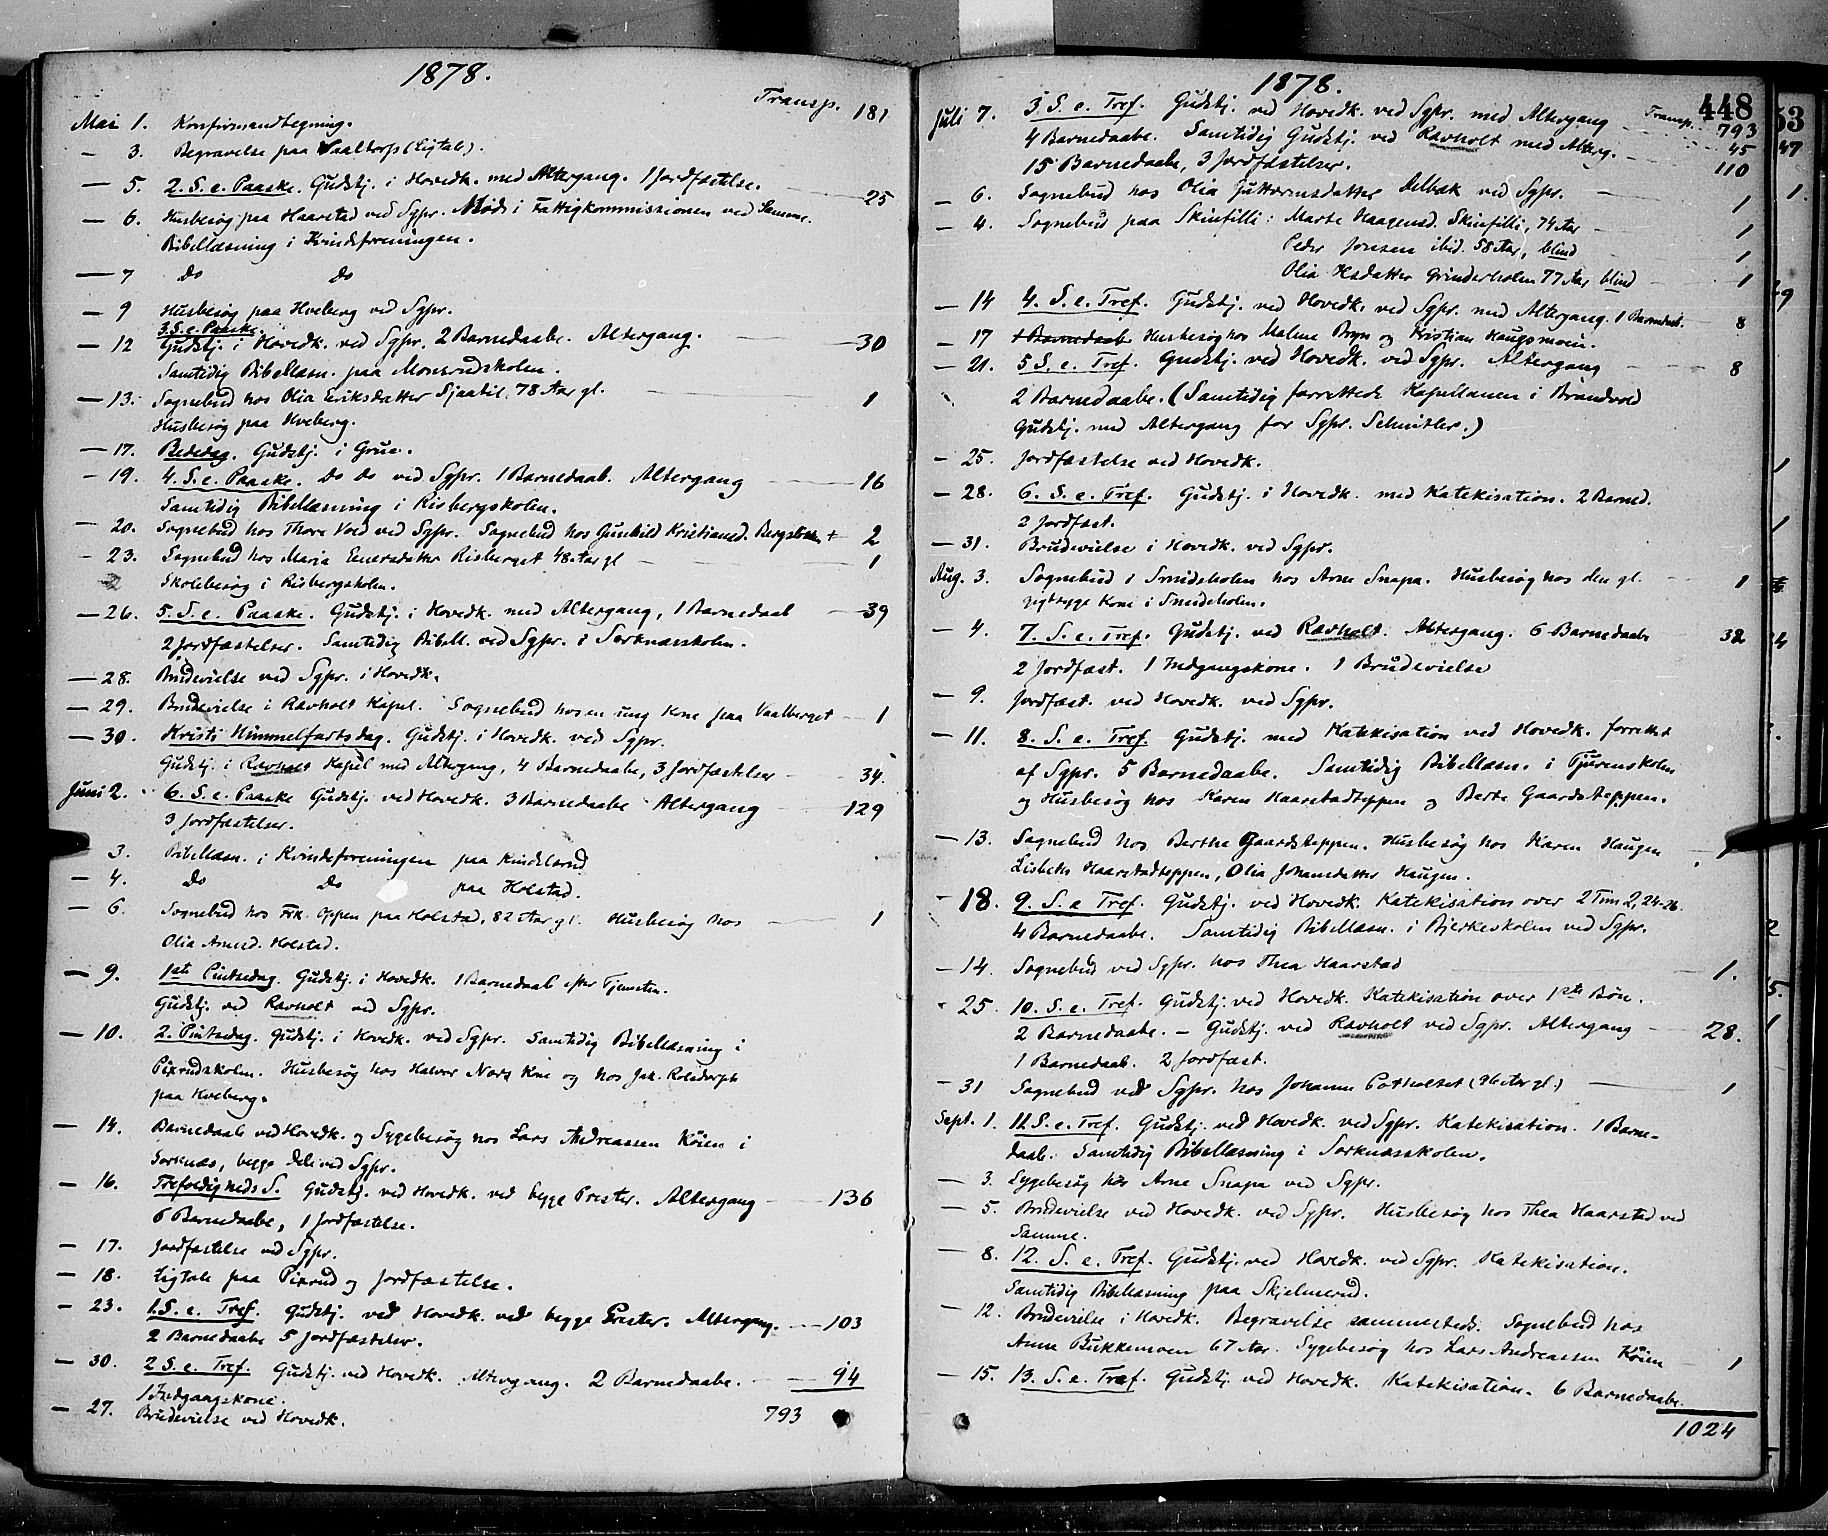 1878.
Transp. 181
Mai 1. Konfirmandtegning.
— 3. Begravelse paa Vaaltorp (Ligtale).
— 5. 2. S. e. Paaske. Gudstj. i Hovedk. med Altergang. 1 Jordfæstelse. 25
— 6. Husbesøg paa Haarstad ved Sgpr. Møde i Fattigkommissionen ved Samme.
Bibellæsning i Kvindeforeningen.
— 7 Do Do
— 9 Husbesøg paa Hveberg ved Sgpr.
3. S. e. Paaske.
— 12 Gudstj. i Hovedk. ved Sgpr. 2 Barnedaabe. Altergang. 30
Samtidig Bibellæsn. paa Monsrudskolen.
— 13. Sognebud hos Olia Eriksdatter Sjaatil. 78 Aar gl. 1
Husbesøg paa Hveberg.
— 17. Bededag. Gudstj. i Grue.
— 19. 4. S. e. Paaske. Do Do ved Sgpr. 1 Barnedaab. Altergang 16
Samtidig Bibellæsning i Risbergskolen.
— 20. Sognebud hos Thore Void ved Sgpr. Sognebud hos Gunhild Kristiansd. 2
— 23. Sognebud hos Maria Einersdatter Risberget 48 Aar gl 1
Skolebesøg i Risbergskolen.
— 26. 5. S. e. Paaske. Gudstj. i Hovedk. med Altergang, 1 Barnedaab 39
2 Jordfæstelser. Samtidig Bibell. ved Sgpr. i Sorknæsskolen.
— 28. Brudevielse ved Sgpr. i Hovedk.
— 29. Brudevielse i Ravholt Kapel. Sognebud hos en ung Kone paa Vaalberget 1
— 30. Kristi Himmelfartsdag. Gudstj. i Hovedk. ved Sgpr.
Gudstj. i Ravholt Kapel med Altergang, 4 Barnedaabe, 3 Jordfæstelser 34.
Juni 2. 6. S. e. Paaske Gudstj. ved Hovedk. 3 Barnedaabe Altergang 129
3 Jordfæstelser.
3. Bibellæsn. i Kvindeforeningen paa Kindelsrud
— 4. Do Do paa Holstad.
— 6. Sognebud hos Frk. Oppen paa Holstad, 82 Aar gl. Husbesøg hos 1
Olia Amud. Holstad.
— 9. 1ste Pintsedag. Gudstj. i Hovedk. 1 Barnedaab efter Tjenesten.
Gudstj. ved Ravholt ved Sgpr.
— 10. 2. Pintsedag. Gudstj. i Hovedk. ved Sgpr. Samtidig Bibellæsning i
Pixrudskolen. Husbesøg hos Halvor Kone og hos Jak. Rolsdorph
paa Hveberg.
— 14. Barnedaab ved Hovedk. og Sygebesøg hos Lars Andreassen Köien i
Sorknæs, begge Dele ved Sgpr.
— 16. Trefoldigheds S. Gudstj. ved Hovedk. ved begge Prester. Altergang 136
6 Barnedaabe, 1 Jordfæstelse.
— 17. Jordfæstelse ved Sgpr.
— 18. Ligtale paa Pixrud og Jordfæstelse.
— 23. 1. S. e. Tref. Gudstj. ved Hovedk. ved begge Prester. Altergang. 103
2 Barnedaabe 5 Jordfæstelser.
— 30. 2 S. e. Tref. Gudstj. ved Hovedk. Altergang. 2 Barnedaabe. 94
1 Indgangskone.
— 27. Brudevielse ved Hovedk. 793
1878.
448
Transp. 793
Juli 7. 3. S. e. Tref. Gudstj. ved Hovedk. ved Sgpr. med Altergang 45
4 Barnedaabe. Samtidig Gudstj. ved Ravholt med Alterg. 110
15 Barnedaabe, 3 Jordfæstelser.
— 6. Sognebud hos Olia Guttormsdatter Delbæk ved Sgpr. 1
— 4. Sognebud paa Skinfilli: Marte Haagensd. Skinfilli, 74 Aar 1
Peder Jonsen ibid. 58 Aar, blind 1
Olia Hsdatter Grinderholen 77 Aar blind 1
— 14 4. S. e. Tref. Gudstj. ved Hovedk. ved Sgpr. med Altergang. 1 Barnedaab. 8
— 17 1 Barnedaab Husbesøg hos Malene Bryn og Kristian Haugsmoen.
— 21. 5 S. e. Tref. Gudstj. ved Hovedk. ved Sgpr. Altergang 8
2 Barnedaabe. (Samtidig forrettede Kapellanen i Brandvold
Gudstj. med Altergang for Sgpr. Schnitler.)
— 25. Jordfæstelse ved Hovedk.
— 28. 6. S. e. Tref. Gudstj. i Hovedk. med Katekisation. 2 Barned.
2 Jordfæst.
— 31. Brudevielse i Hovedk. ved Sgpr.
Aug. 3. Sognebud i Smideholen hos Arne Snapa. Husbesøg hos den gl. 1
gigtsyge Kone i Smideholen.
— 4. 7. S. e. Tref. Gudstj. ved Ravholt. Altergang. 6 Barnedaabe 32
2 Jordfæst. 1 Indgangskone. 1 Brudevielse
— 9. Jordfæst. ved Hovedk. ved Sgpr.
— 11. 8. S. e. Tref. Gudstj. med Katekisation ved Hovedk. forrettet
af Sgpr. 5 Barnedaabe. Samtidig Bibellæsn. i Tjurenskolen
og Husbesøg hos Karen Haarstadteppen og Berte Gaardsteppen.
— 13. Sognebud hos Berthe Gaardsteppen. Husbesøg hos Karen Haugen 1
Lisbeth Haarstadteppen, Olia Johansdatter Haugen.
— 18. 9. S. e Tref. Gudstj. ved Hovedk. Katekisation over 2 Tim 2, 24-26.
4 Barnedaabe. Samtidig Bibellæsn. i Bjerkeskolen ved Sgpr.
— 14. Sognebud ved Sgpr. hos Thea Haarstad 1.
25. 10. S. e. Tref. Gudstj. ved Hovedk. Katekisation over 1ste Bøn.
2 Barnedaabe. — Gudstj. ved Ravholt ved Sgpr. Altergang 28.
1 Barnedaab. 2 Jordfæst.
— 31 Sognebud ved Sgpr. hos Johanne (96 Aar gl.) 1
Sept. 1. 11 S. e. Tref. Gudstj. ved Hovedk. ved Sgpr. Katekisation. 1 Barne-
daab. Samtidig Bibellæsning i Sorknæsskolen.
— 3. Sygebesøg hos Arne Snapa ved Sgpr.
— 5. Brudevielse ved Hovedk. ved Sgpr. Husbesøg hos Thea Haarstad ved
Samme.
— 8. 12. S. e. Tref. Gudstj. ved Hovedk. ved Sgpr. Katekisation.
Samtidig Bibellæsning paa Skjelmerud.
— 12. Brudevielse i Hovedk. Begravelse sammesteds. Sognebud hos
Anne Bukkemoen 67 Aar. Sygebesøg hos Lars Andreassen Köien 1
— 15. 13. S. e. Tref. Gudstj. ved Hovedk. Katekisation. 6 Barnedaabe.
1024
53